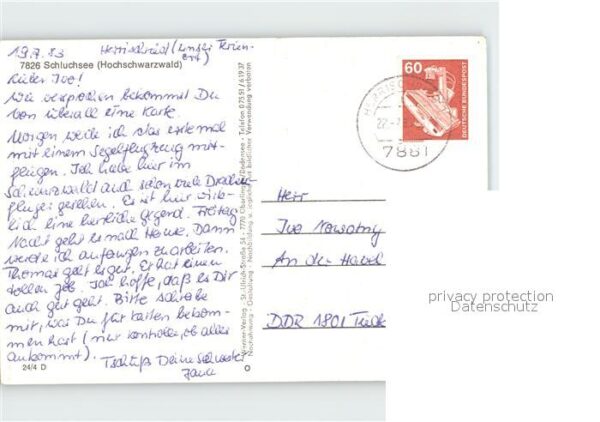 19.7.83 Herrischried (unser Ferien-
ort)
7826 Schluchsee (Hochschwarzwald)
Lieber Ivo!
Wie versprochen bekommst Du
von überall eine Karte.
Morgen werde ich das erste mal
mit einem Segelflugzeug mit-
fliegen. Ich habe hier im
Schwarzwald auch schon viele Drachen-
flieger gesehen. Es ist hier wirk-
lich eine herrliche Gegend. Freitag
Nacht geht es nach Hause. Dann
werde ich anfangen zu arbeiten.
Thomas geht es gut. Er hat einen
tollen Job. Ich hoffe, daß es Dir
auch gut geht. Bitte schreibe
mir, was Du für Karten bekom-
men hast (nur Kontrolle, ob alles
ankommt).
Tschüß Deine Schwester
24/4 D
60
DEUTSCHE BUNDESPOST
7881
Herr
Ivo Nowotny
An der Havel
DDR 1801
privacy protection
Datenschutz